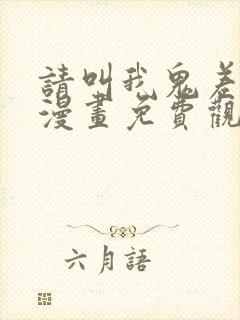 請叫我鬼差
漫畫免費觀
六月語